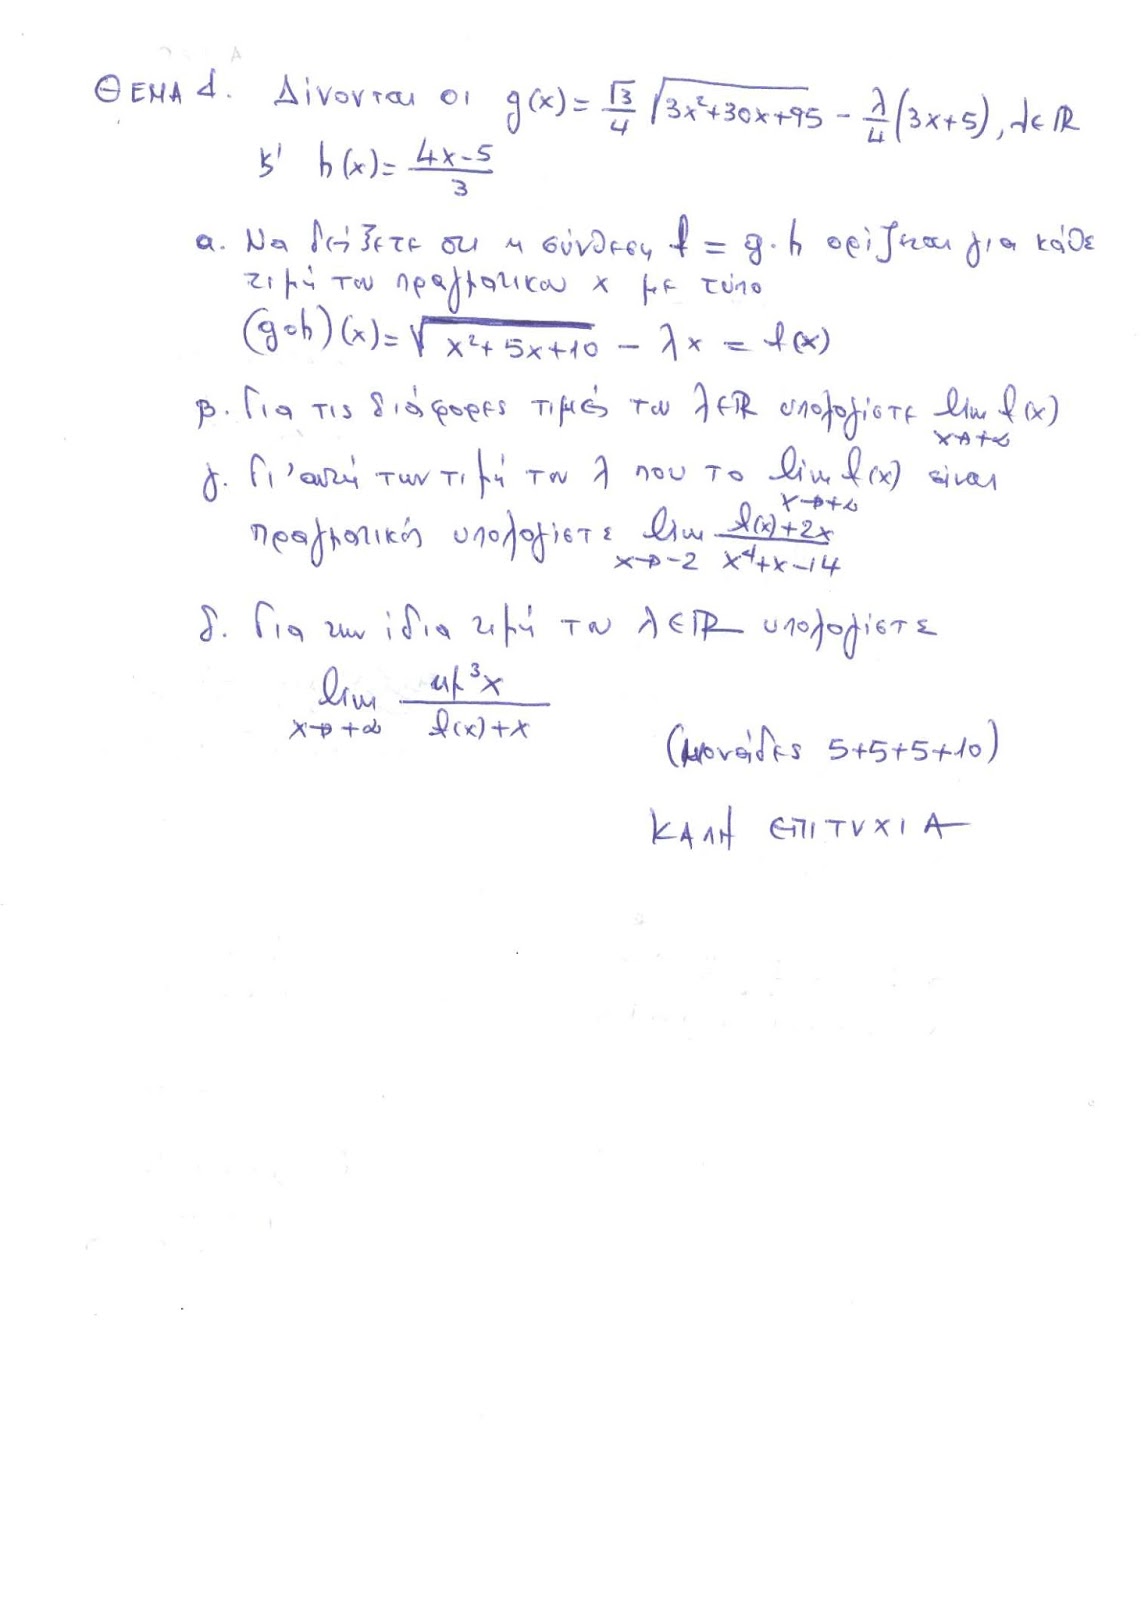 ΘΕΜΑ Δ. Δίνονται οι g(x)= √3/4 √(3x²+30x+95) - λ/4 (3x+5), λ∈ℝ
κ' h(x)= (4x-5)/3
α. Να δείξετε οτι η σύνθεση f = g∘h ορίζεται για κάθε
τιμή του πραγματικου x με τύπο
(g∘h)(x)= √(x²+5x+10) - λx = f(x)
β. Για τις διάφορες τιμές του λ∈ℝ υπολογίστε lim f(x) x→+∞
γ. Γι' αυτή των τιμή του λ που το lim f(x) είναι x→+∞
πραγματικός υπολογίστε lim x→-2 (f(x)+2x)/(x⁴+x-14)
δ. Για την ίδια τιμή του λ∈ℝ υπολογίστε
lim x→+∞ ημ³x/(f(x)+x)
(μονάδες 5+5+5+10)
ΚΑΛΗ ΕΠΙΤΥΧΙΑ